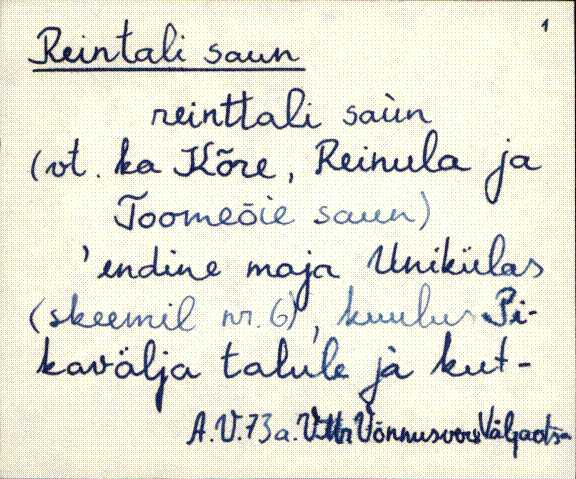 1
Reintali saun
reinttali saùn
(vt. ka Kõre, Reinula ja
Toomeõie saun)
'endine maja Unikülas
(skeemil nr. 6), kuulus Pi-
kavälja talule ja kut-
A.V. 73a. Võnnusvere Väljaots